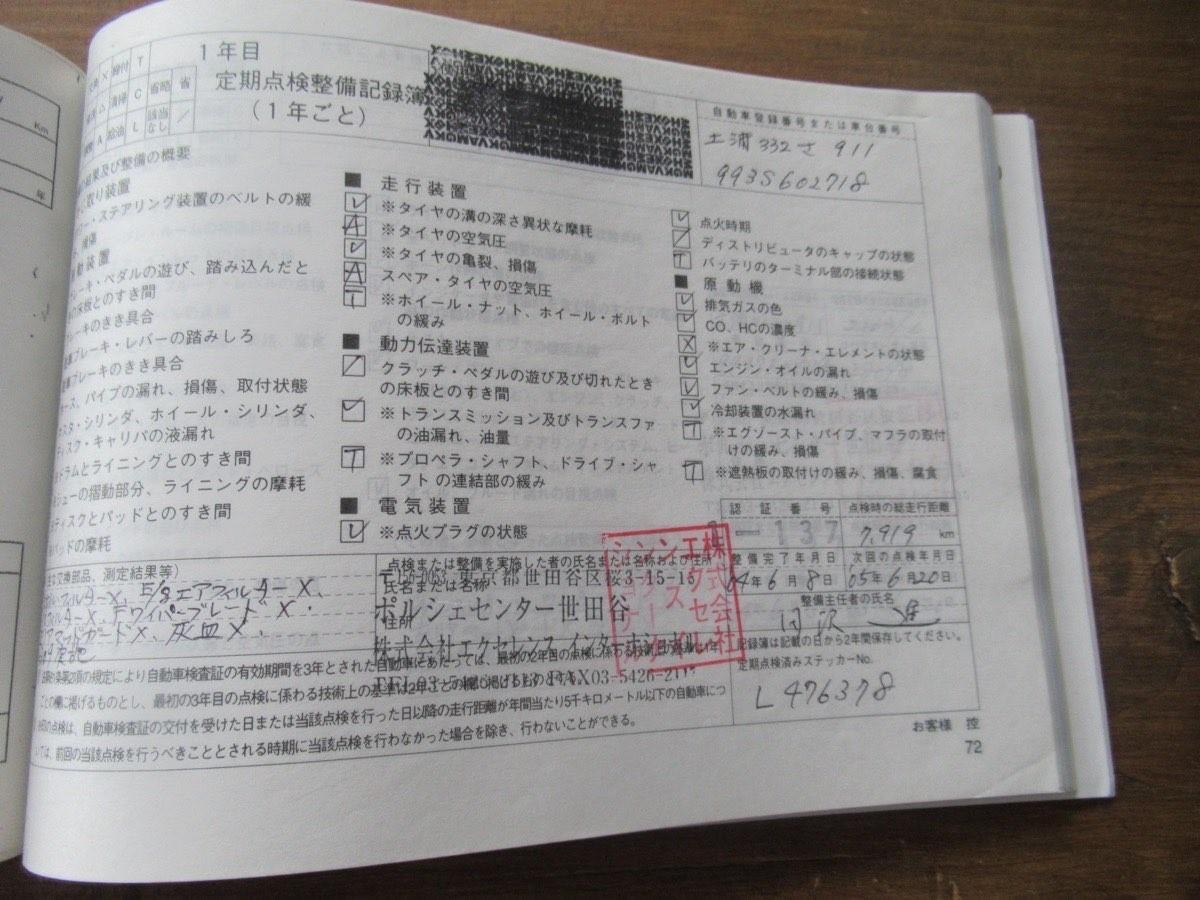 1年目
定期点検整備記録簿
(1年ごと)
締付 T
清掃 C 省略 省
給油 L 該当なし /
自動車登録番号または車台番号
土浦 332 さ 911
993S602718
結果及び整備の概要
かじ取り装置
ステアリング装置のベルトの緩
損傷
ペダルの遊び、踏み込んだと
床板とのすき間
ブレーキのきき具合
ブレーキ・レバーの踏みしろ
ブレーキのきき具合
パイプの漏れ、損傷、取付状態
シリンダ、ホイール・シリンダ、
ディスク・キャリパの液漏れ
ドラムとライニングとのすき間
シューの摺動部分、ライニングの摩耗
ディスクとパッドとのすき間
パッドの摩耗
■ 走行装置
レ ※タイヤの溝の深さ異状な摩耗
A ※タイヤの空気圧
レ ※タイヤの亀裂、損傷
A スペア・タイヤの空気圧
T ※ホイール・ナット、ホイール・ボルト
の緩み
■ 動力伝達装置
/ クラッチ・ペダルの遊び及び切れたとき
の床板とのすき間
レ ※トランスミッション及びトランスファ
の油漏れ、油量
T ※プロペラ・シャフト、ドライブ・シャ
フトの連結部の緩み
■ 電気装置
レ ※点火プラグの状態
レ 点火時期
/ ディストリビュータのキャップの状態
T バッテリのターミナル部の接続状態
■ 原動機
レ 排気ガスの色
レ CO、HCの濃度
X ※エア・クリーナ・エレメントの状態
レ エンジン・オイルの漏れ
レ ファン・ベルトの緩み、損傷
レ 冷却装置の水漏れ
T ※エグゾースト・パイプ、マフラの取付
けの緩み、損傷
T ※遮熱板の取付けの緩み、損傷、腐食
認証番号 点検時の総走行距離
137 7,919 km
整備完了年月日 次回の点検年月日
04年6月8日 05年6月20日
整備主任者の氏名
記録簿は記載の日から2年間保存してください。
定期点検済みステッカーNo.
L 476378
交換部品、測定結果等)
エアフィルターX、
Fワイパーブレード X・
灰皿X、
点検または整備を実施した者の氏名または名称および住所
東京都世田谷区桜3-15-15
氏名または名称
ポルシェセンター世田谷
住所
株式会社エクセレンスインターナショナル
FAX03-5426-
株式会社
エクセレンス
インターナショナル
2項の規定により自動車検査証の有効期間を3年とされた自動車にあたっては、最初の2年目の点検に係わる技術上の基準は1年
ごとの欄に掲げるものとし、最初の3年目の点検に係わる技術上の点検の基準は2年ごとの欄に掲げるものとする。
の点検は、自動車検査証の交付を受けた日または当該点検を行った日以降の走行距離が年間当たり5千キロメートル以下の自動車につ
いては、前回の当該点検を行うべきこととされる時期に当該点検を行わなかった場合を除き、行わないことができる。
お客様 控
72